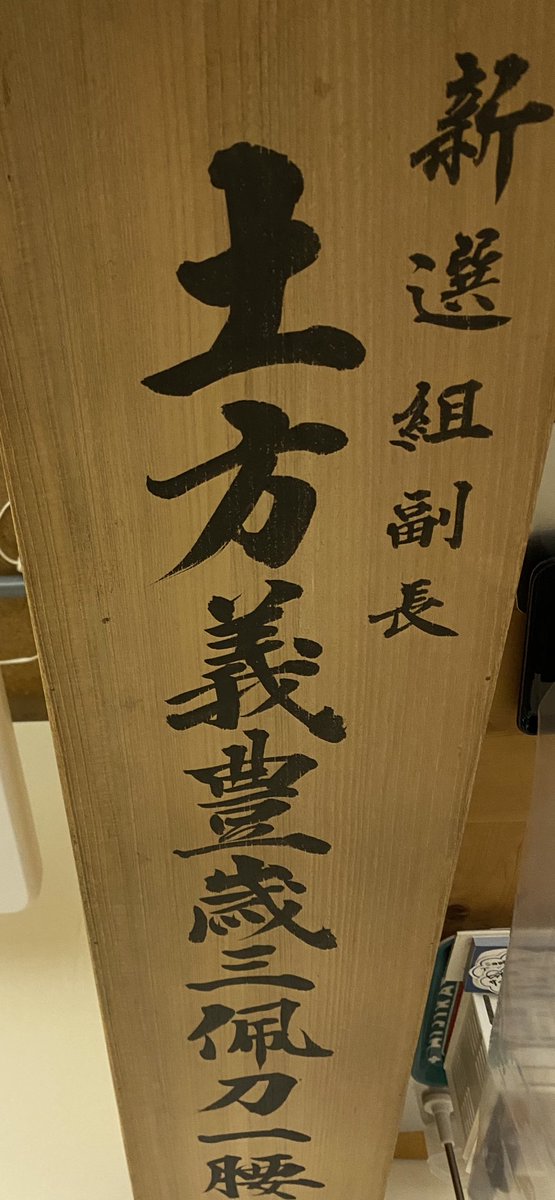 新選組副長
土方義豊歳三佩刀一腰